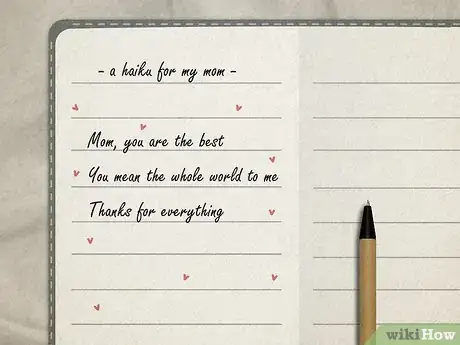 - a haiku for my mom -
Mom, you are the best
You mean the whole world to me
Thanks for everything
wikiHow